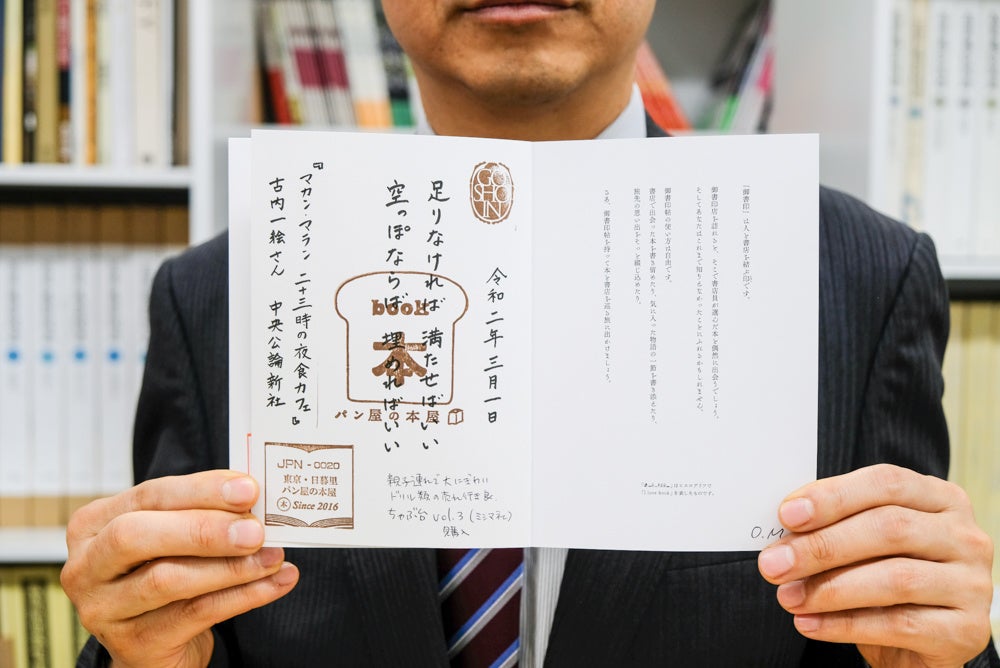 「御書印」は人と書店を結ぶ印です。
御書印店を訪れると、そこで書店員が選んだ本と偶然に出会うでしょう。
そしてあなたはこれまで知りえなかったことにふれるかもしれません。
御書印帖の使い方は自由です。
書店で出会った本を書き留めたり、気に入った物語の一節を書き添えたり、
旅先の思い出をそっと綴じ込めたり。
さあ、御書印帖を持って本と書店を巡る旅に出かけましょう。
「I love book」を表したものです。
O.M
GO
SHO
IN
令和二年三月一日
足りなければ 満たせばいい
空っぽならば 埋めればいい
『マカン・マラン 二十三時の夜食カフェ』
古内一絵さん 中央公論新社
book
本
パン屋の本屋
JPN - 0020
東京・日暮里
パン屋の本屋
本 Since 2016
親子連れで大にぎわい
ドリル類の売れ行き良
ちゃぶ台 vol.3 (ミシマ社)
購入